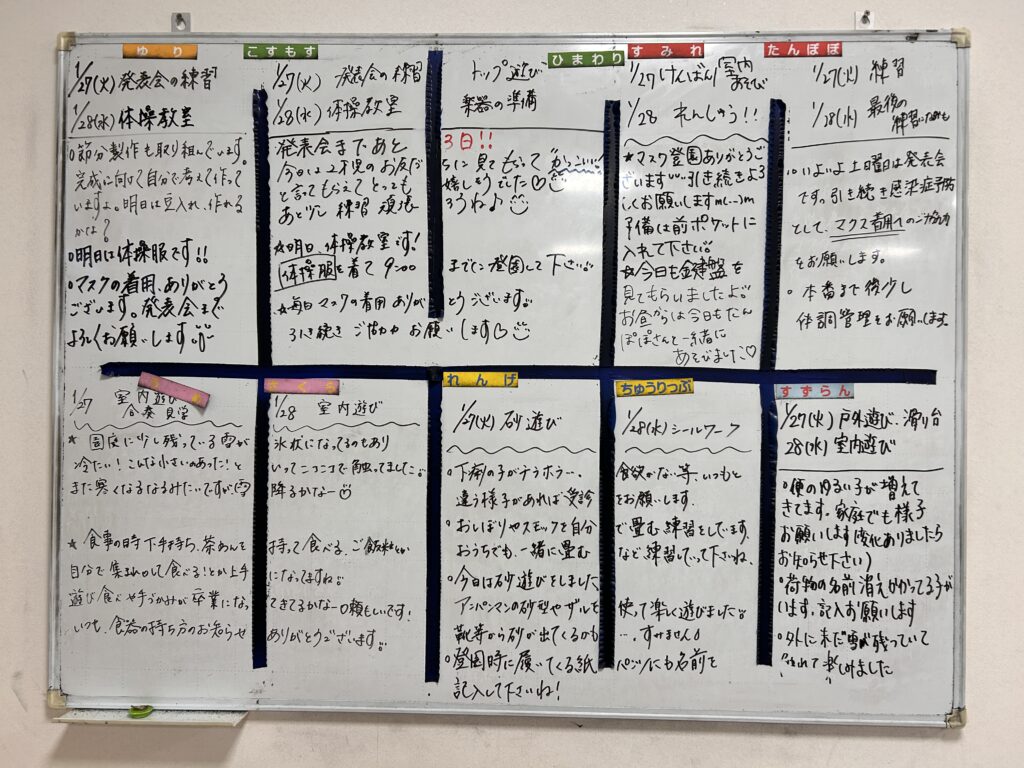 ゆり
1/27(火)発表会の練習
1/28(水)体操教室
○節分製作も取り組んでいます。
完成に向けて自分で考えて作って
いますよ。明日は豆入れ、作れる
かな?
○明日は体操服です!!
○マスクの着用、ありがとう
ございます。発表会まで
よろしくお願いします。
こすもす ひまわり
1/27(火) 発表会の練習 トップ遊び
1/28(水) 体操教室 楽器の準備
発表会まであと 3日!!
今日は2才児のお友だ ちに見てもらって "かっこいい"
と言ってもらえてとっても 嬉しそうでした♡
あと少し 練習 頑張 ろうね♪
☆明日、体操教室です!
体操服を着て 9:00 までに登園して下さい。
☆毎日マスクの着用 ありが とうございます。
引き続き ご協力 お願 いします♡
すみれ
1/27 けんばん/室内あそび
1/28 れんしゅう!!
★マスク登園ありがとうご
ざいます 引き続きよろ
しくお願いしますm(__)m
予備は前ポケットに
入れて下さい。
☆今日も鍵盤を
見てもらいましたよ。
お昼からは今日もたん
ぽぽさんと一緒に
あそびました♡
たんぽぽ
1/27(火) 練習
1/28(水) 最後の
○いよいよ土曜日は発表会
です。引き続き感染症予防
として、マクス着用へのご協力
をお願いします。
○本番まで後少し
体調管理をお願いします。
さくら
1/27 室内遊び 1/28 室内遊び
合奏見学
★ 園庭に少し残っている雪が 氷状になってるのもあり
冷たい!こんな小さいのあった!と いってニコニコで触ってました。
また寒くなるなるみたいですが、雪 降るかなー
★ 食事の時 下手持ち、茶わんを 持って食べる、ご飯粒とか
自分で集まれ〜して食べる!とか上手 になってますね。
遊び食べや手づかみが卒業にな ってきてるかなー♡頼もしいです!
いつも、食器の持ち方のお知らせ ありがとうございます。
れんげ ちゅうりっぷ
1/27(火) 砂遊び 1/28(水) シールワーク
○下痢の子がチラホラ…、 食欲がな…等、いつもと
違う様子があれば受診 をお願いします。
○おしぼりやスモックを自分 で畳む練習をしています。
おうちでも、一緒に畳む など練習していって下さいね。
○今日は砂遊びをしました。
アンパンマンの砂型やザルを 使って楽しく遊びました。
靴等から砂が出てくるかも …、すみません♪
○登園時に履いてくる紙 パンツにも名前を
記入して下さいね!
すずらん
1/27(火) 戸外遊び、滑り台
28(水) 室内遊び
○便のゆるい子が増えて
きてます。家庭でも様子
お願いします(変化ありましたら
お知らせ下さい)
○荷物の名前消えかかってる子が
います。記入お願いします
○外にまだ雪が残っていて
楽しめました